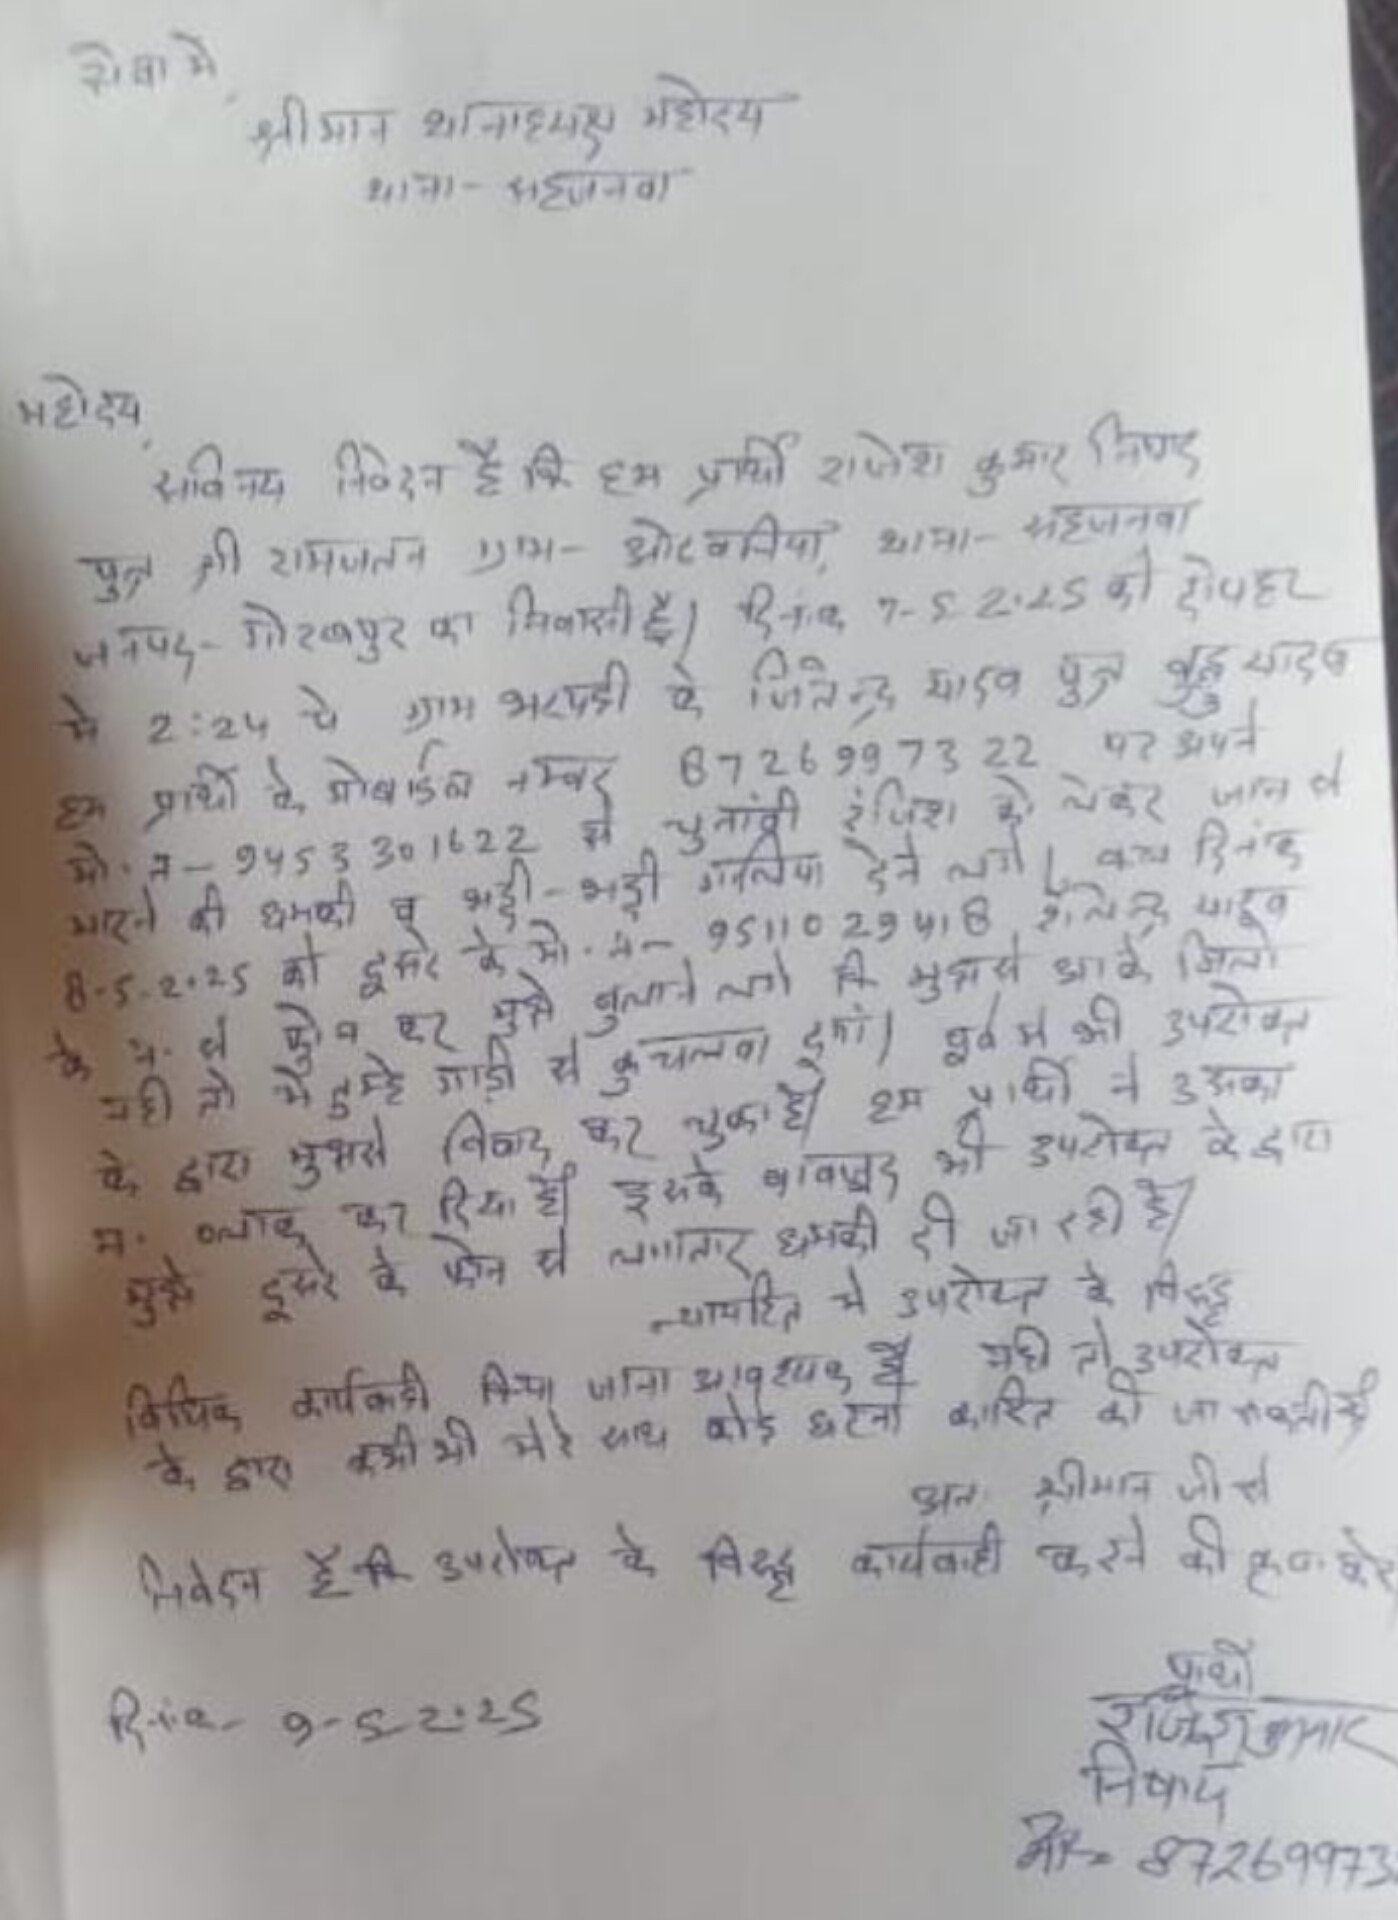 सेवा में,
श्रीमान थानाध्यक्ष महोदय
थाना- सहजनवा
महोदय,
सविनय निवेदन है कि हम प्रार्थी राजेश कुमार निषाद
पुत्र श्री रामजतन ग्राम- थाना- सहजनवा
जनपद- गोरखपुर का निवासी है। दिनांक 7-5-2025 को दोपहर
में 2:24 पे ग्राम के जितेन्द्र यादव पुत्र यादव
हम प्रार्थी के मोबाईल नम्बर 8726997322 पर अपने
मो. न- 9453301622 से चुनांवी रंजिश को लेकर जान से
मारने की धमकी व भद्दी-भद्दी गालिया देने लगे। दिनांक
8-5-2025 को दूसरे के मो. न- 9511029418 शैलेन्द्र यादव
के न. से फोन कर मुझे बुलाने लगे कि मुझसे आके मिलो
नही तो मै तुम्हे गाड़ी से कुचलवा दूगां। पूर्व मे भी उपरोक्त
के द्वारा मुझसे विवाद कर चुका है। हम प्रार्थी ने उसका
न. ब्लाक कर दिया है। इसके बावजूद भी उपरोक्त के द्वारा
मुझे दूसरे के फोन से लगातार धमकी दी जा रही है।
न्यायहित मे उपरोक्त के विरूद्ध
विधिक कार्यवाही किया जाना आवश्यक है नही तो उपरोक्त
के द्वारा कभी भी मेरे साथ कोई घटना कारित की जा सकती है
अतः श्रीमान जी से
निवेदन है कि उपरोक्त के विरूद्ध कार्यवाही करने की कृपा करे
दिनांक- 9-5-2025
प्रार्थी
राजेश कुमार
निषाद
मो- 87269973